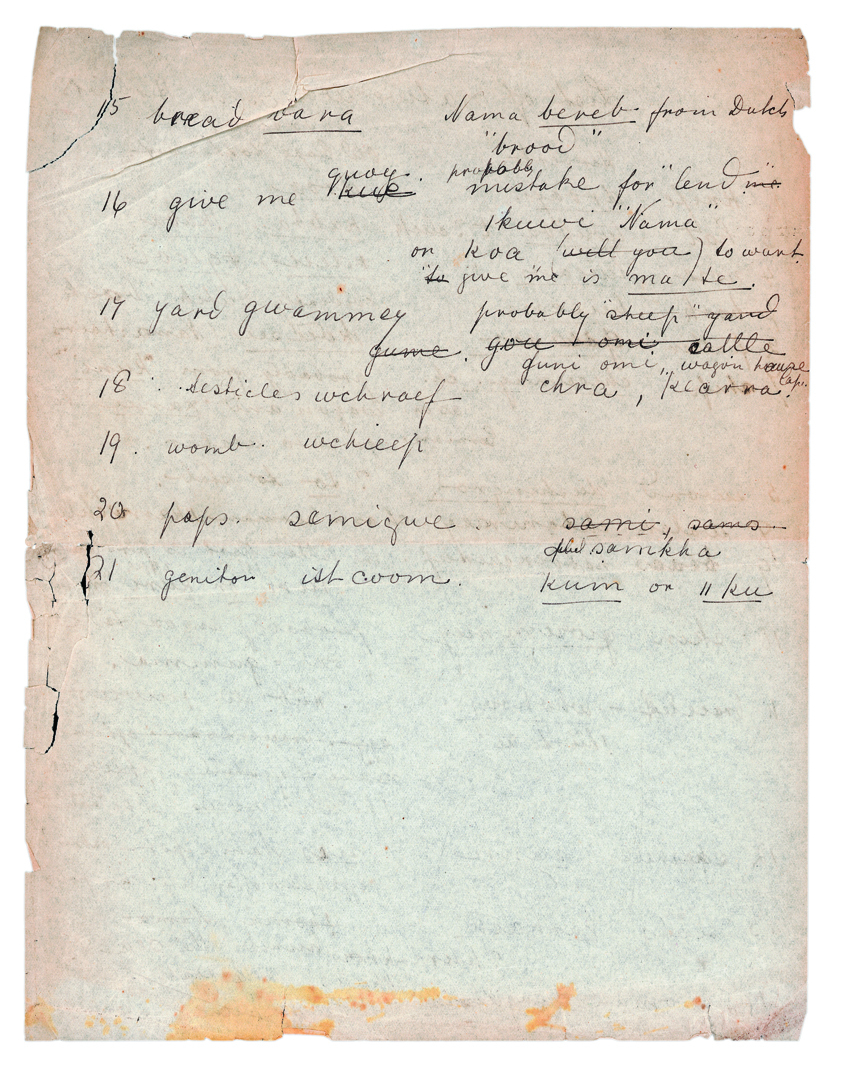 15 bread bara Nama bereb from Dutch
"brood"
16 give me quoy. probably mistake for "lend me
ikuwi "Nama"
or koa (will you) to want
"to give me is ma te.
17 yard gwammey probably "sheep" yard
gume. gou omi cattle
guni omi, wagon house
18 testicles wchraef chra, karra Cap.
19. womb. wchieep
20 paps. semigwe. sami, sams.
samkha
21 genitor ist coom. kum or ǁ ku